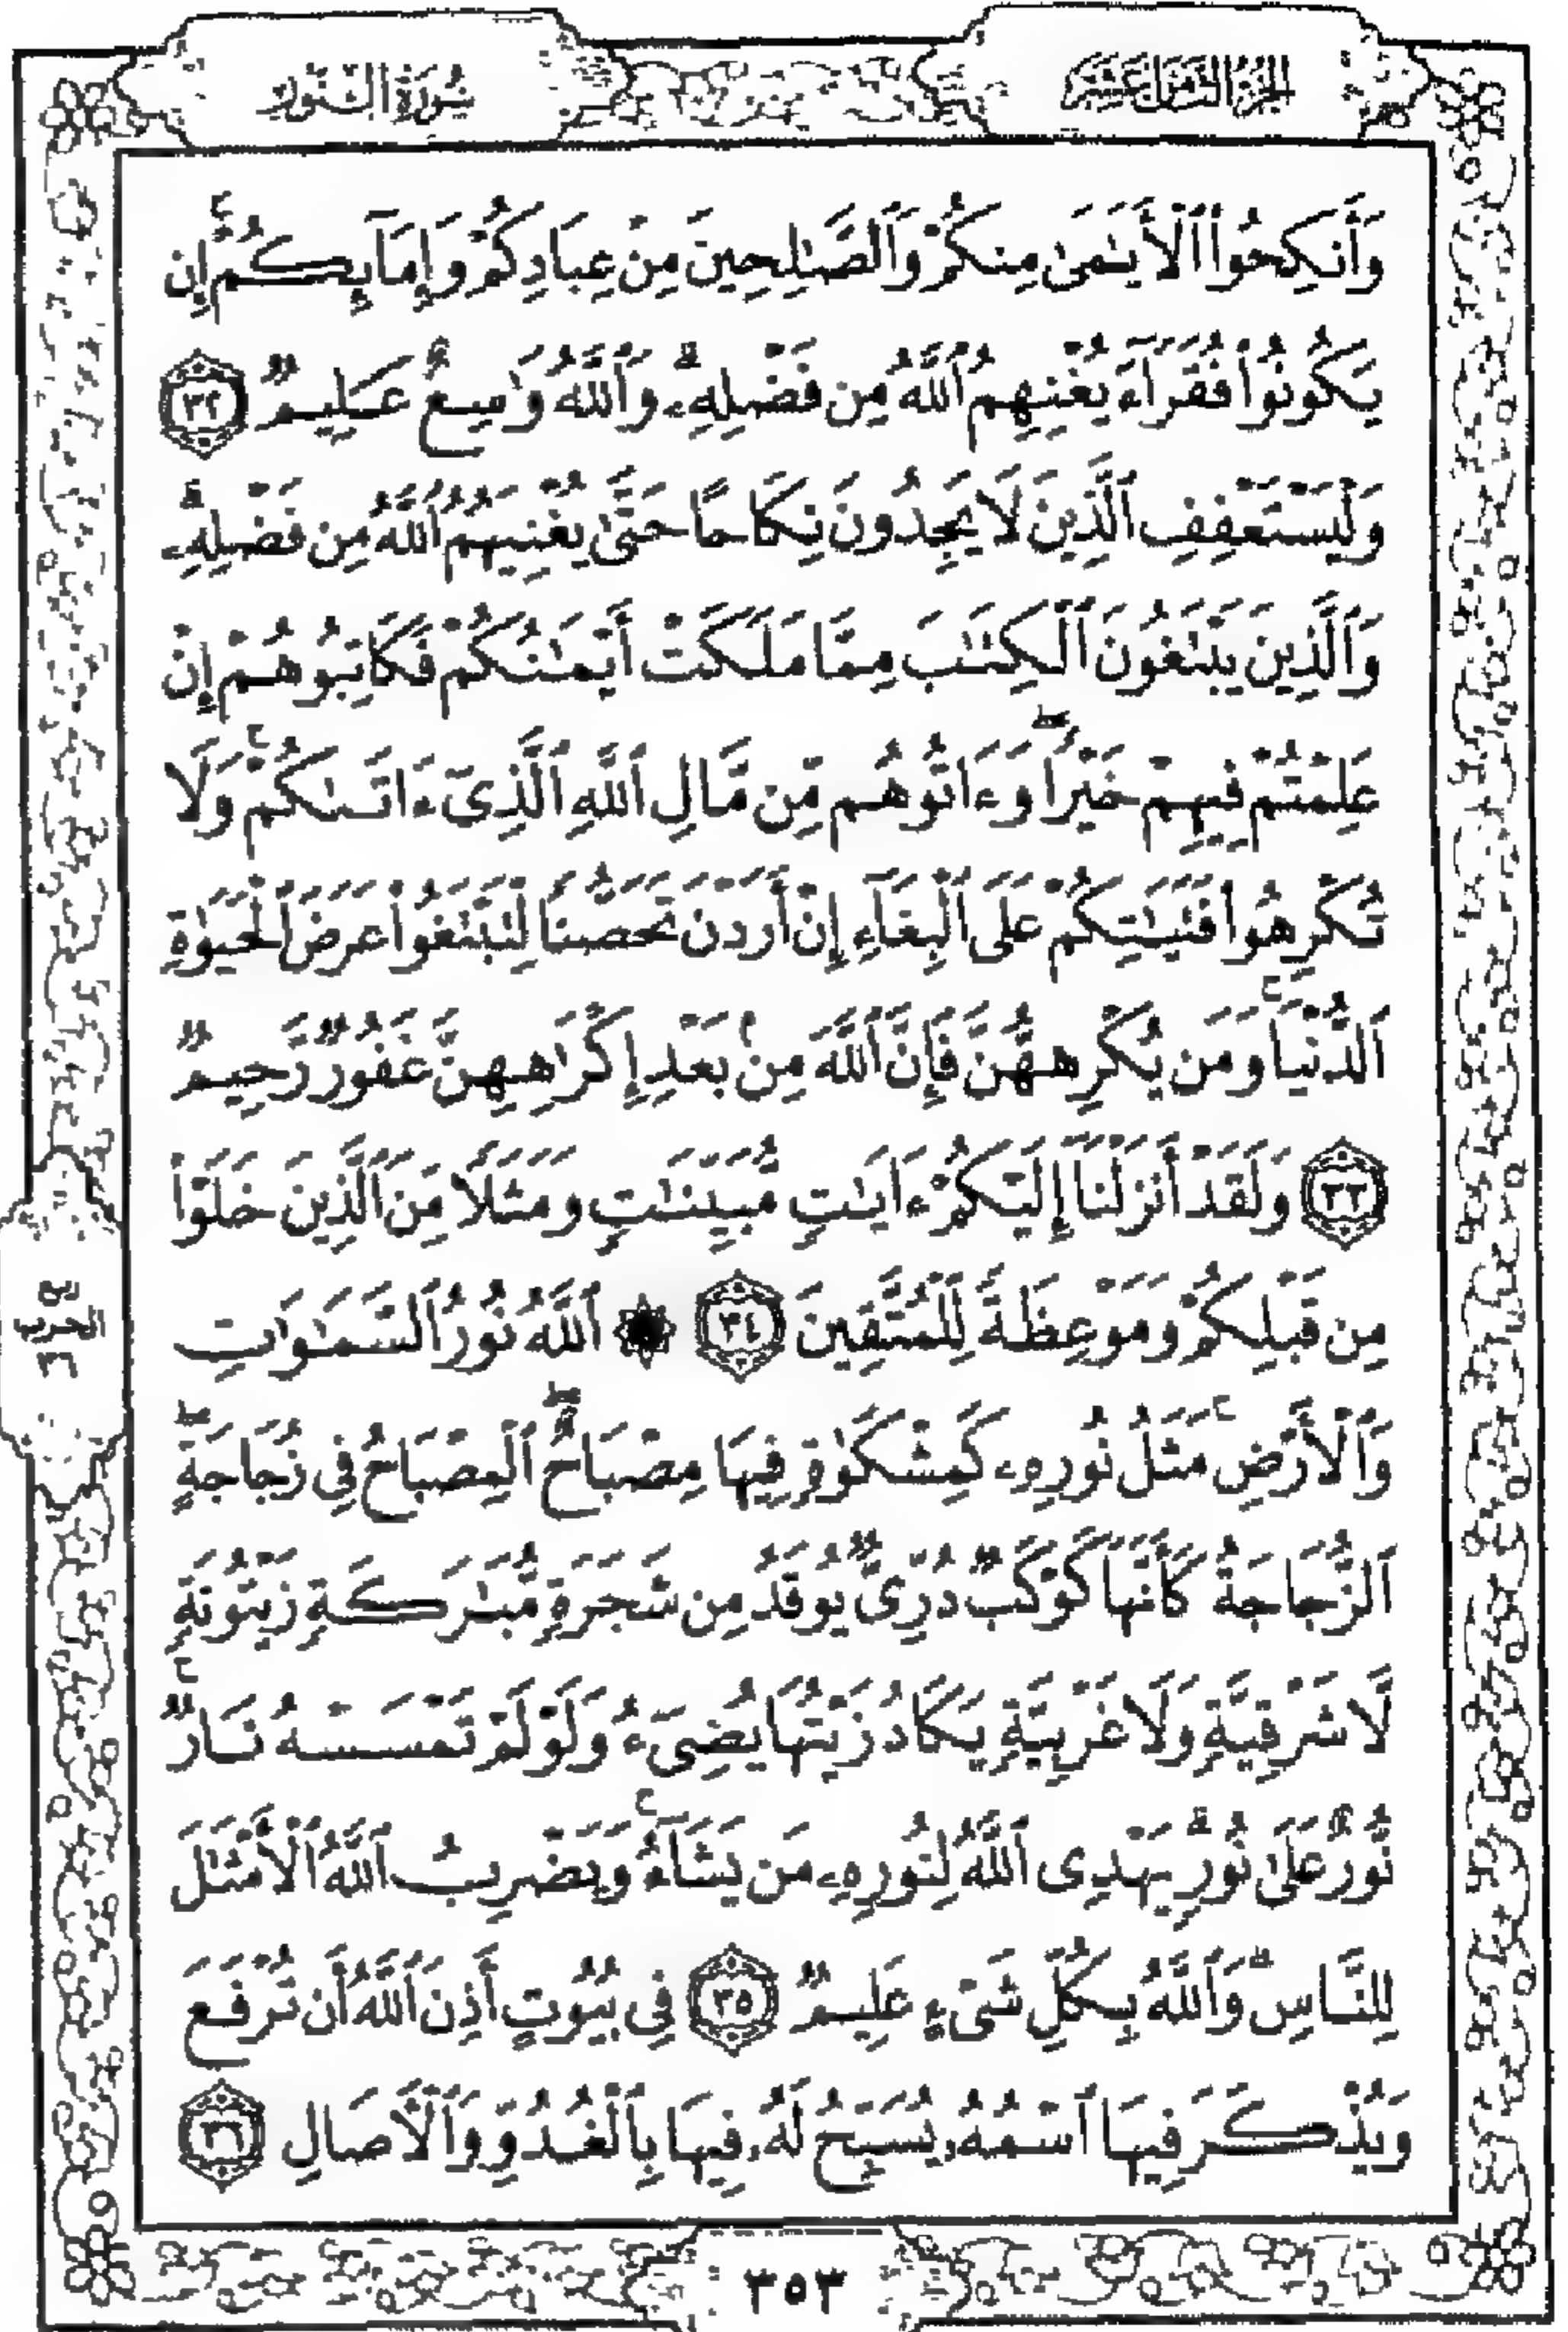 الجزء الثامن عشر
سورة النور
وَأَنكِحُوا۟ ٱلْأَيَـٰمَىٰ مِنكُمْ وَٱلصَّـٰلِحِينَ مِنْ عِبَادِكُمْ وَإِمَآئِكُمْ ۚ إِن
يَكُونُوا۟ فُقَرَآءَ يُغْنِهِمُ ٱللَّهُ مِن فَضْلِهِۦ ۗ وَٱللَّهُ وَٰسِعٌ عَلِيمٌ ٣٢
وَلْيَسْتَعْفِفِ ٱلَّذِينَ لَا يَجِدُونَ نِكَاحًا حَتَّىٰ يُغْنِيَهُمُ ٱللَّهُ مِن فَضْلِهِۦ ۗ
وَٱلَّذِينَ يَبْتَغُونَ ٱلْكِتَـٰبَ مِمَّا مَلَكَتْ أَيْمَـٰنُكُمْ فَكَاتِبُوهُمْ إِنْ
عَلِمْتُمْ فِيهِمْ خَيْرًا ۖ وَءَاتُوهُم مِّن مَّالِ ٱللَّهِ ٱلَّذِىٓ ءَاتَىٰكُمْ ۚ وَلَا
تُكْرِهُوا۟ فَتَيَـٰتِكُمْ عَلَى ٱلْبِغَآءِ إِنْ أَرَدْنَ تَحَصُّنًا لِّتَبْتَغُوا۟ عَرَضَ ٱلْحَيَوٰةِ
ٱلدُّنْيَا ۚ وَمَن يُكْرِههُّنَّ فَإِنَّ ٱللَّهَ مِنۢ بَعْدِ إِكْرَٰهِهِنَّ غَفُورٌ رَّحِيمٌ
٣٣ وَلَقَدْ أَنزَلْنَآ إِلَيْكُمْ ءَايَـٰتٍ مُّبَيِّنَـٰتٍ وَمَثَلًا مِّنَ ٱلَّذِينَ خَلَوْا۟
مِن قَبْلِكُمْ وَمَوْعِظَةً لِّلْمُتَّقِينَ ٣٤ ۞ ٱللَّهُ نُورُ ٱلسَّمَـٰوَٰتِ
وَٱلْأَرْضِ ۚ مَثَلُ نُورِهِۦ كَمِشْكَوٰةٍ فِيهَا مِصْبَاحٌ ۖ ٱلْمِصْبَاحُ فِى زُجَاجَةٍ ۖ
ٱلزُّجَاجَةُ كَأَنَّهَا كَوْكَبٌ دُرِّىٌّ يُوقَدُ مِن شَجَرَةٍ مُّبَـٰرَكَةٍ زَيْتُونَةٍ
لَّا شَرْقِيَّةٍ وَلَا غَرْبِيَّةٍ يَكَادُ زَيْتُهَا يُضِىٓءُ وَلَوْ لَمْ تَمْسَسْهُ نَارٌ ۚ
نُّورٌ عَلَىٰ نُورٍ ۗ يَهْدِى ٱللَّهُ لِنُورِهِۦ مَن يَشَآءُ ۚ وَيَضْرِبُ ٱللَّهُ ٱلْأَمْثَـٰلَ
لِلنَّاسِ ۗ وَٱللَّهُ بِكُلِّ شَىْءٍ عَلِيمٌ ٣٥ فِى بُيُوتٍ أَذِنَ ٱللَّهُ أَن تُرْفَعَ
وَيُذْكَرَ فِيهَا ٱسْمُهُۥ يُسَبِّحُ لَهُۥ فِيهَا بِٱلْغُدُوِّ وَٱلْـَٔاصَالِ ٣٦
الحزب
٣٦
٣٥٣